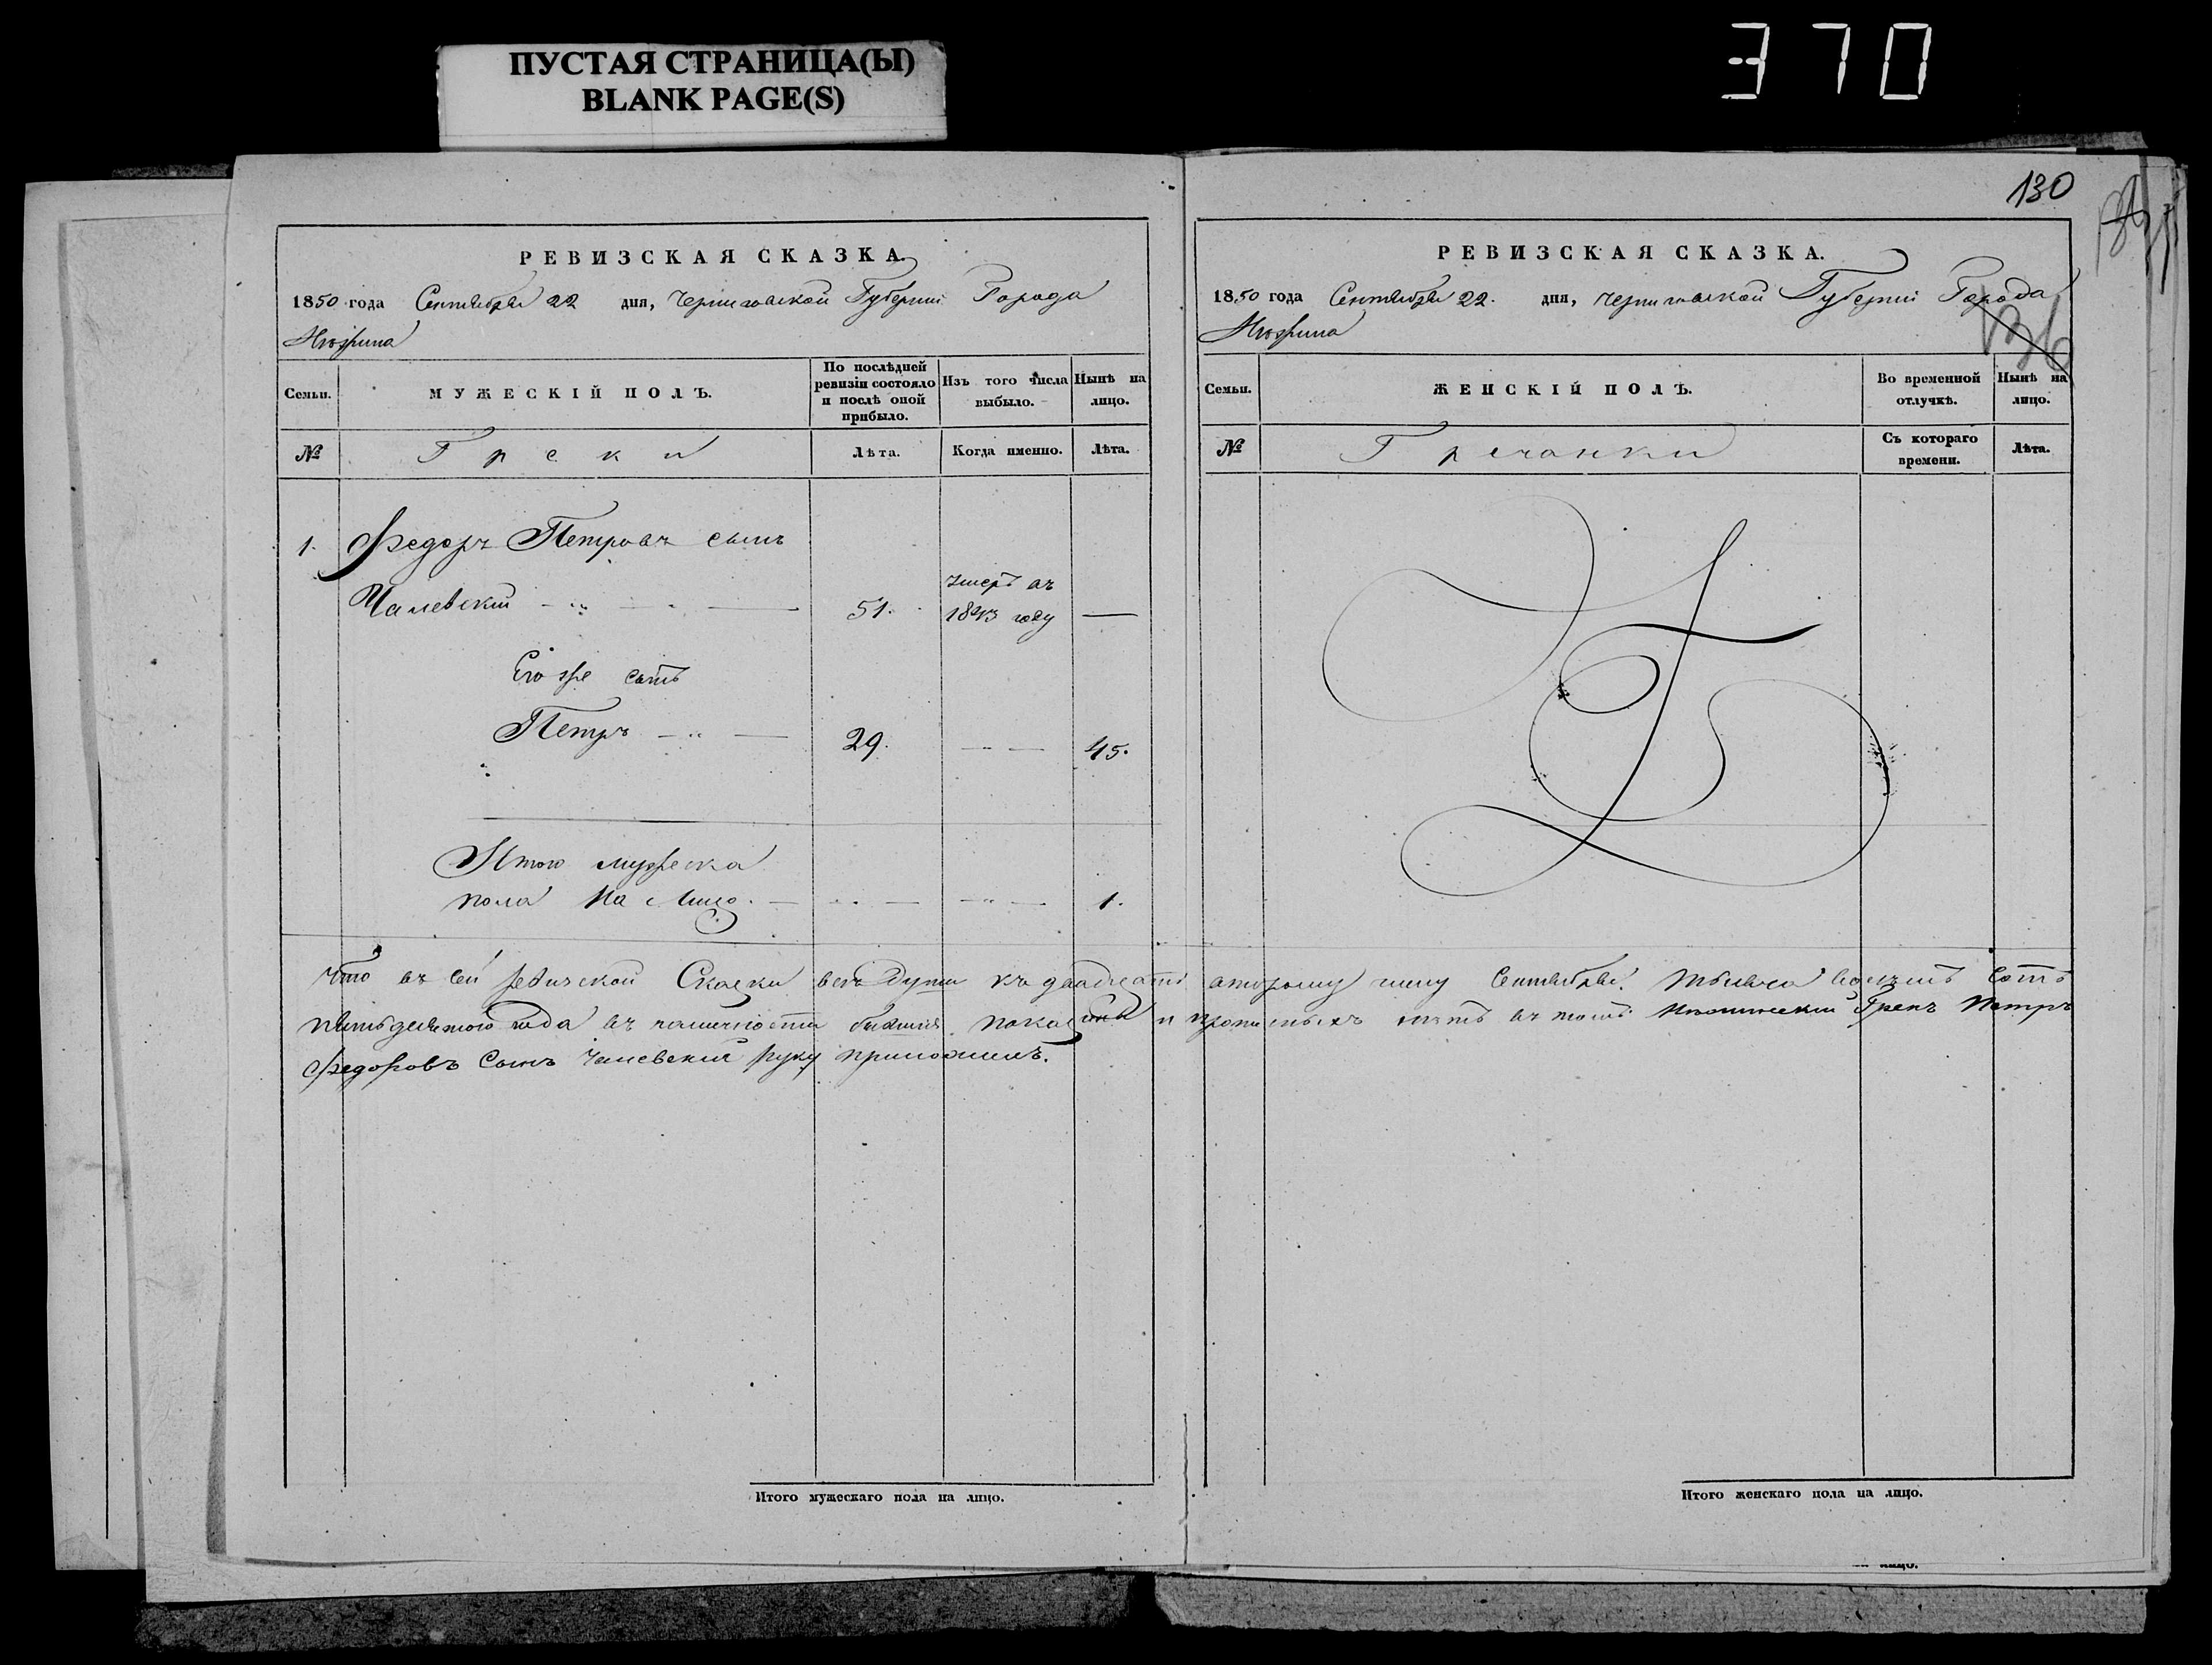 ПУСТАЯ СТРАНИЦА(Ы)
BLANK PAGE(S)
370
130
РЕВИЗСКАЯ СКАЗКА.
1850 года Сентября 22 дня, Черниговской Губерніи Города
Нѣжина
Семьи.
МУЖЕСКІЙ ПОЛЪ.
По послѣдней ревизіи состояло и послѣ оной прибыло.
Изъ того числа выбыло.
Нынѣ на лицо.
№
Греки
Лѣта.
Когда именно.
Лѣта.
1. Федоръ Петровъ сынъ
Чалевскій 51. умеръ въ 1843 году —
Его же сынъ
Петръ 29. 45.
Итого мужеска
пола на лицо. 1.
РЕВИЗСКАЯ СКАЗКА.
1850 года Сентября 22. дня, Черниговской Губерніи Города
Нѣжина
136
Семьи.
ЖЕНСКІЙ ПОЛЪ.
Во временной отлучкѣ.
Нынѣ на лицо.
№
Гречанки
Съ котораго времени.
Лѣта.
Что въ сей ревизской Сказки всѣ души къ двадцать второму числу Сентября тысяча восемъ сотъ
пятьдесятого года въ наличности бывшія показаны и прописныхъ нѣтъ въ томъ Нѣжинскій Грекъ Петръ
Федоровъ Сынъ Чалевскій руку приложилъ.
Итого мужескаго пола на лицо.
Итого женскаго пола на лицо.